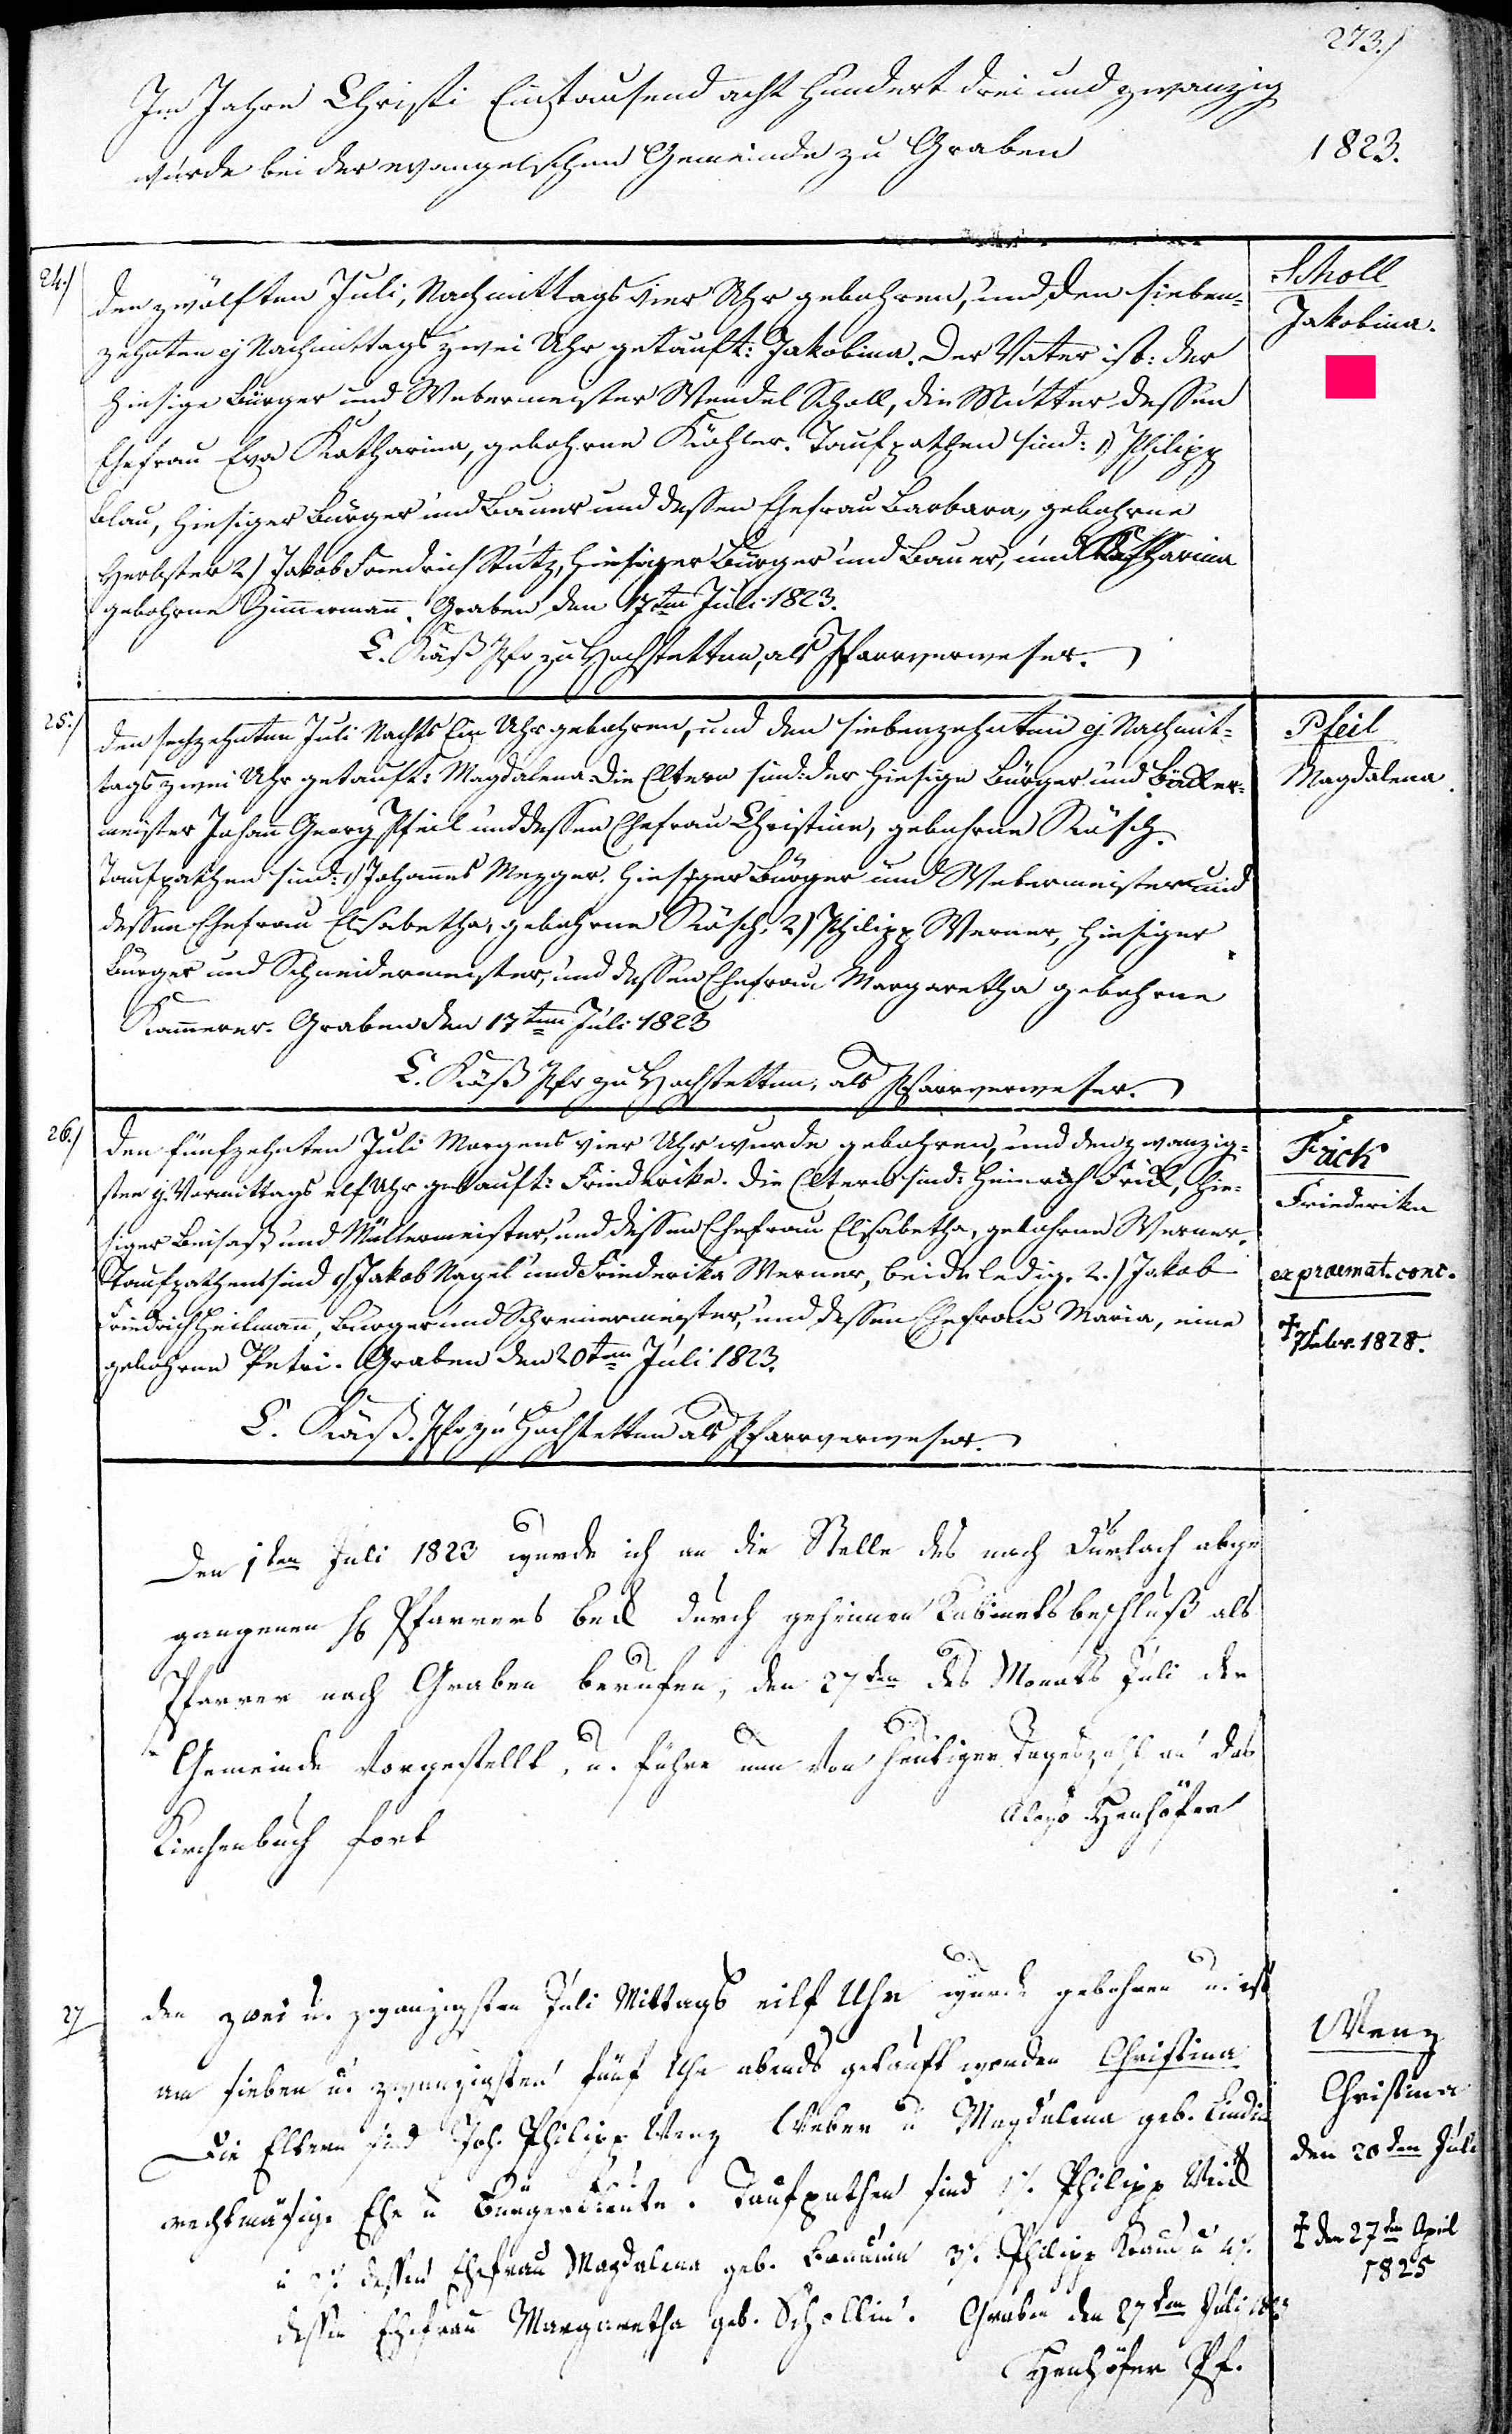 273./
Im Jahre Christi Eintausend acht hundert drei und zwanzig
wurde bei der evangelischen Gemeinde zu Graben
1823.
24./
Scholl
Jakobina.
den zwölften Juli, Nachmittags vier Uhr gebohren, und den sieben-
zehnten ej Nachmittags zwei Uhr getauft: Jakobina. Der Vater ist: der
hiesige Bürger und Webermeister Wendel Scholl, die Mutter dessen
Ehefrau Eva Katharina, gebohrne Köhler. Taufpathen sind: 1) Philipp
Blau, hiesiger Bürger und Bauer und dessen Ehefrau Barbara, gebohrne
Herbster 2) Jakob Friedrich Stutz, hiesiger Bürger und Bauer, und Katharina
gebohrne Zimmermann. Graben den 17ten Juli 1823.
C. Käß Pfr zu Hochstetten, als Pfarrverweser.
25./
Pfeil
Magdalena.
den sechzehnten Juli Nachts Ein Uhr gebohren, und den siebenzehnten ej Nachmit-
tags zwei Uhr getauft: Magdalena Die Eltern sind: der hiesige Bürger und Bäcker-
meister Johann Georg Pfeil und dessen Ehefrau Christine, gebohrne Rösch.
Taufpathen sind: 1) Johannes Mezger. hiesiger Bürger und Webermeister und
dessen Ehefrau Elisabetha, gebohrne Rösch, 2) Philipp Werner, hiesiger
Bürger und Schneidermeister, und dessen Ehefrau Margaretha gebohrne
Kammerer. Graben den 17ten Juli 1823
C. Käß Pfr zu Hochstetten, als Pfarrverweser.
26./
Frick
Friederika
ex praemat. conc.
† 7 Febr. 1828.
den fünfzehnten Juli Morgens vier Uhr wurde gebohren, und den zwanzig-
sten ej. Vormittags elf Uhr getauft: Friederike. Die Eltern sind: Heinrich Frick, hie-
siger Beisaß und Müllermeister, und dessen Ehefrau Elisabetha, gebohrne Werner.
Taufpathen sind 1) Jakob Nagel und Friederika Werner, beide ledig. 2.) Jakob
Friedrich Heilmann, Bürger und Schreinermeister, und dessen Ehefrau Maria, eine
gebohrne Petri. Graben den 20ten Juli 1823.
C. Käß. Pfr zu Hochstetten als Pfarrverweser.
Den 1ten Juli 1823 wurde ich an die Stelle des nach Durlach abge
gangenen H Pfarrers Beck durch geheimen Kabinetsbeschluß als
Pfarrer nach Graben berufen, den 27ten des Monats Juli der
Gemeinde vorgestellt, u. führe nun von heutiger Tageszahl an das
Kirchenbuch fort
Aloys Henhöfer
27
Wenz
Christina
den 20ten Juli
† den 27ten April
1825
den zwei u. zwanzigsten Juli Mittags eilf Uhr wurde gebohren u. ist
am sieben u. zwanzigsten fünf Uhr abends getauft worden Christina
Die Eltern sind Joh. Philipp Wenz Weber u Magdalena geb.
rechtmäsige Ehe u Bürgersleute. Taufpathen sind 1/. Philipp
u 2/. dessen Ehefrau Magdalena geb. 3/. Philipp u 4/.
dessen Ehefrau Margaretha geb. Schollin. Graben den 27ten Juli 1823
Henhöfer Pf.